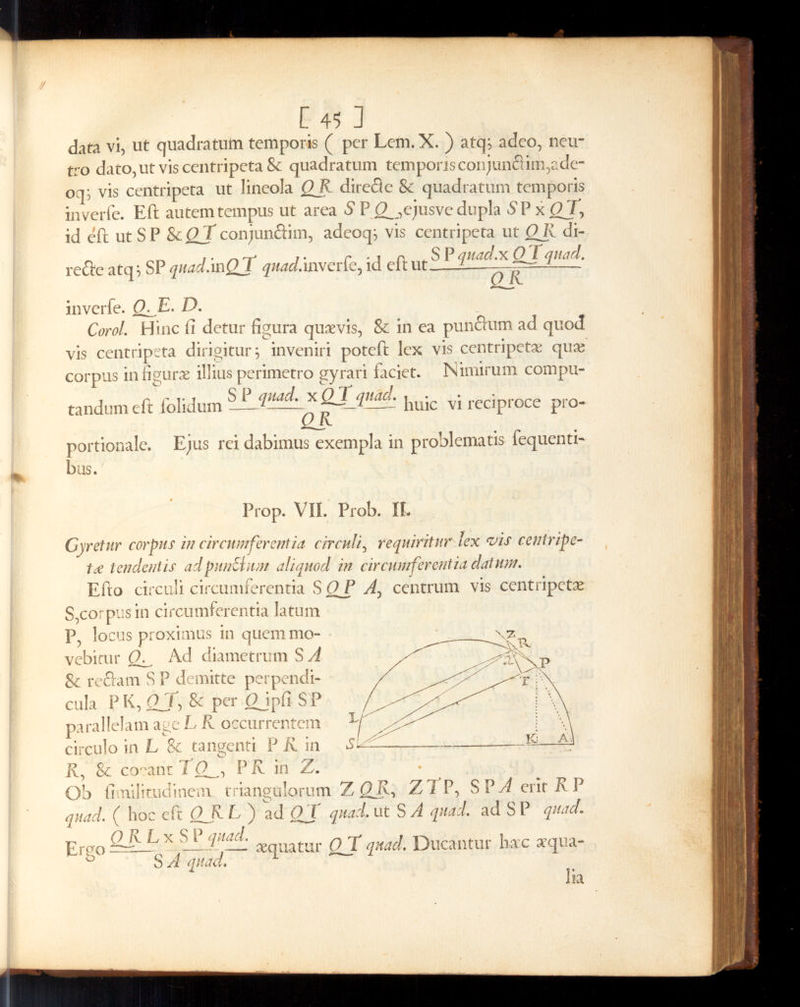 [ 45 ]
data vi, ut quadratum temporis ( per Lem. X. ) atq; adeo, neu-
tro dato, ut vis centripeta & quadratum temporis conjunctim, ade-
oq; vis centripeta ut lineola QR directe & quadratum temporis
inverse. Est autem tempus ut area SPQ, ejusve dupla SP x QT,
id est ut SP & QT conjunctim, adeoq; vis centripeta ut QR di-
recte atq; SP quad. in QT quad. inverse, id est ut SP quad. x QT quad. / QR
inverse. Q. E. D.
Corol. Hinc si detur figura quævis, & in ea punctum ad quod
vis centripeta dirigitur; inveniri potest lex vis centripetæ quæ
corpus in figuræ illius perimetro gyrari faciet. Nimirum compu-
tandum est solidum SP quad. x QT quad. / QR huic vi reciproce pro-
portionale. Ejus rei dabimus exempla in problematis sequenti-
bus.
Prop. VII. Prob. II.
Gyretur corpus in circumferentia circuli, requiritur lex vis centripe-
tæ tendentis ad punctum aliquod in circumferentia datum.
Esto circuli circumferentia SQPA, centrum vis centripetæ
S, corpus in circumferentia latum
P, locus proximus in quem mo-
vebitur Q. Ad diametrum SA
& rectam SP demitte perpendi-
cula PK, QT, & per Q ipsi SP
parallelam age LR occurrentem
circulo in L & tangenti PR in
R, & coeant TQ, PR in Z.
Z
R
P
T
L
S
K
A
Ob similitudinem triangulorum ZQR, ZTP, SPA erit RP
quad. ( hoc est QRL ) ad QT quad. ut SA quad. ad SP quad.
Ergo QRL x SP quad. / SA quad. æquatur QT quad. Ducantur hæc æqua-
lia